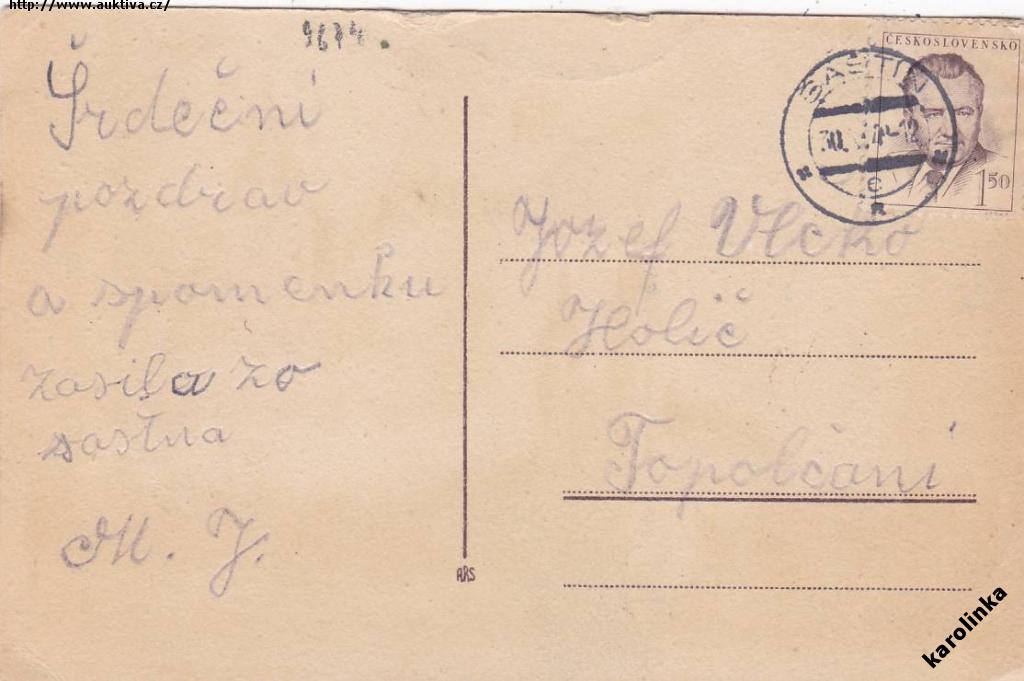 http://www.auktiva.cz/
9674.
Srdečni
pozdrav
a spomenku
zasila zo
sastna
M. J.
ARS
ČESKOSLOVENSKO
1 50
30.
12
c
Jozef Vlcko
Holič
Topolčani
karolinka